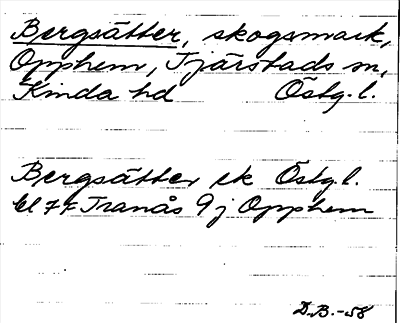 Bergsätter, skogsmark,
Opphem, Tjärstads sn,
Kinda hd Östg. l.
Bergsätter ek Östg. l.
bl 7F Tranås 9j Opphem
D.B.-58